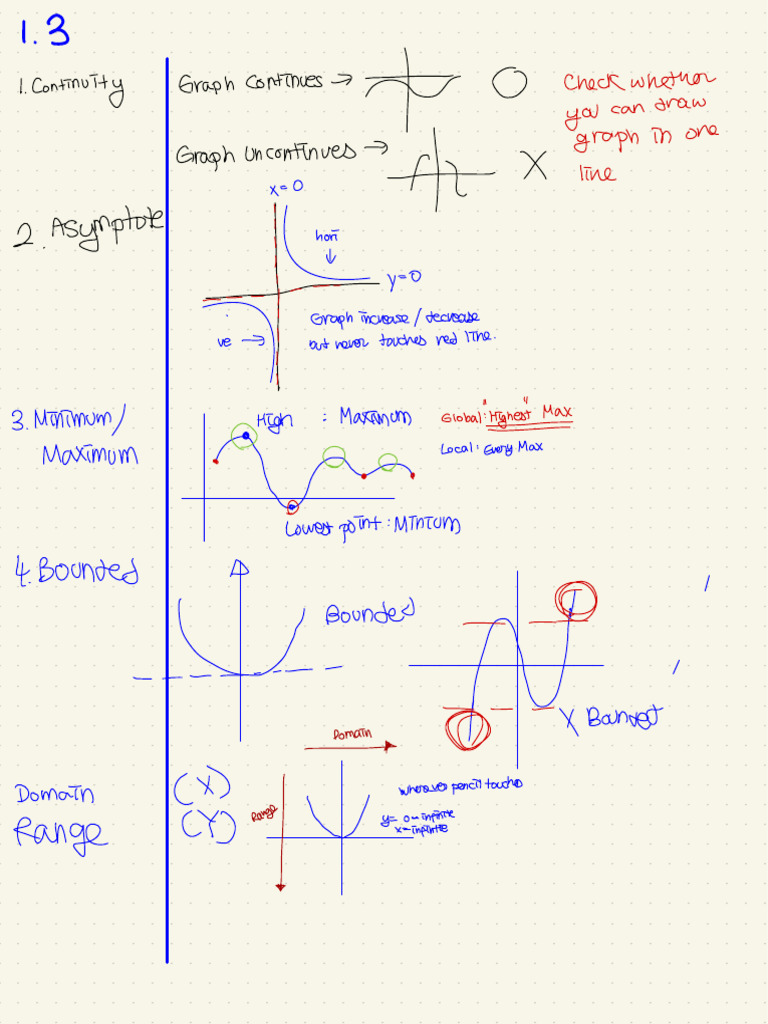 1.3
1. Continuity
Graph Continues →
O
Check whether
you can draw
graph in one
line
Graph Uncontinues →
X
2. Asymptote
x=0
hori
y=0
Graph increase / decrease
but never touches red line.
ve →
3. Minimum/
Maximum
High : Maximum
Global: "Highest" Max
Local: Every Max
Lowest point: Minium
4. Bounded
Bounded
X Bounded
Domain (X)
Range (Y)
Domain
Range
Wherever pencil touches
y= 0~infinite
x~infinite